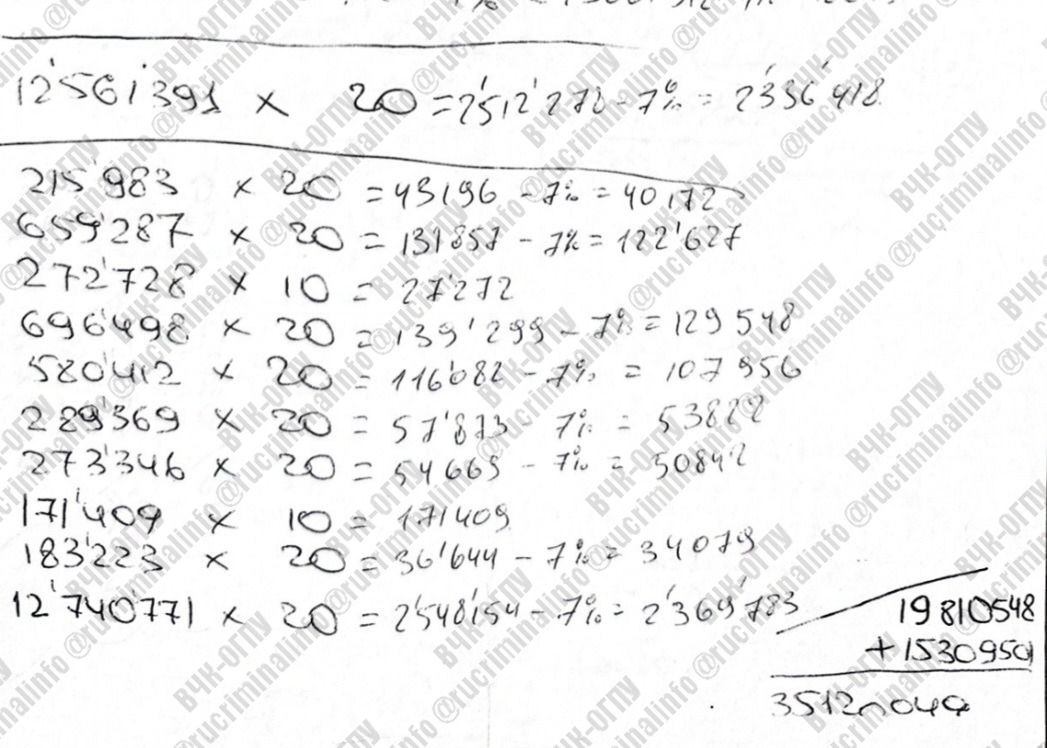 12'561'391 x 20 = 2'512'278 - 7% = 2'336'418
215'983 x 20 = 43196 - 7% = 40172
659'287 x 20 = 131857 - 7% = 122'627
272'728 x 10 = 27'272
696'498 x 20 = 139'299 - 7% = 129548
580'412 x 20 = 116'082 - 7% = 107956
289'369 x 20 = 57'873 - 7% =
273'346 x 20 = 54669 - 7% = 50842
171'409 x 10 = 171409
183'223 x 20 = 36'644 - 7% = 34079
12'740'771 x 20 = 2'548'154 - 7% = 2'369'783
19810548
+15309501
ВЧК-ОГПУ @rucriminalinfo